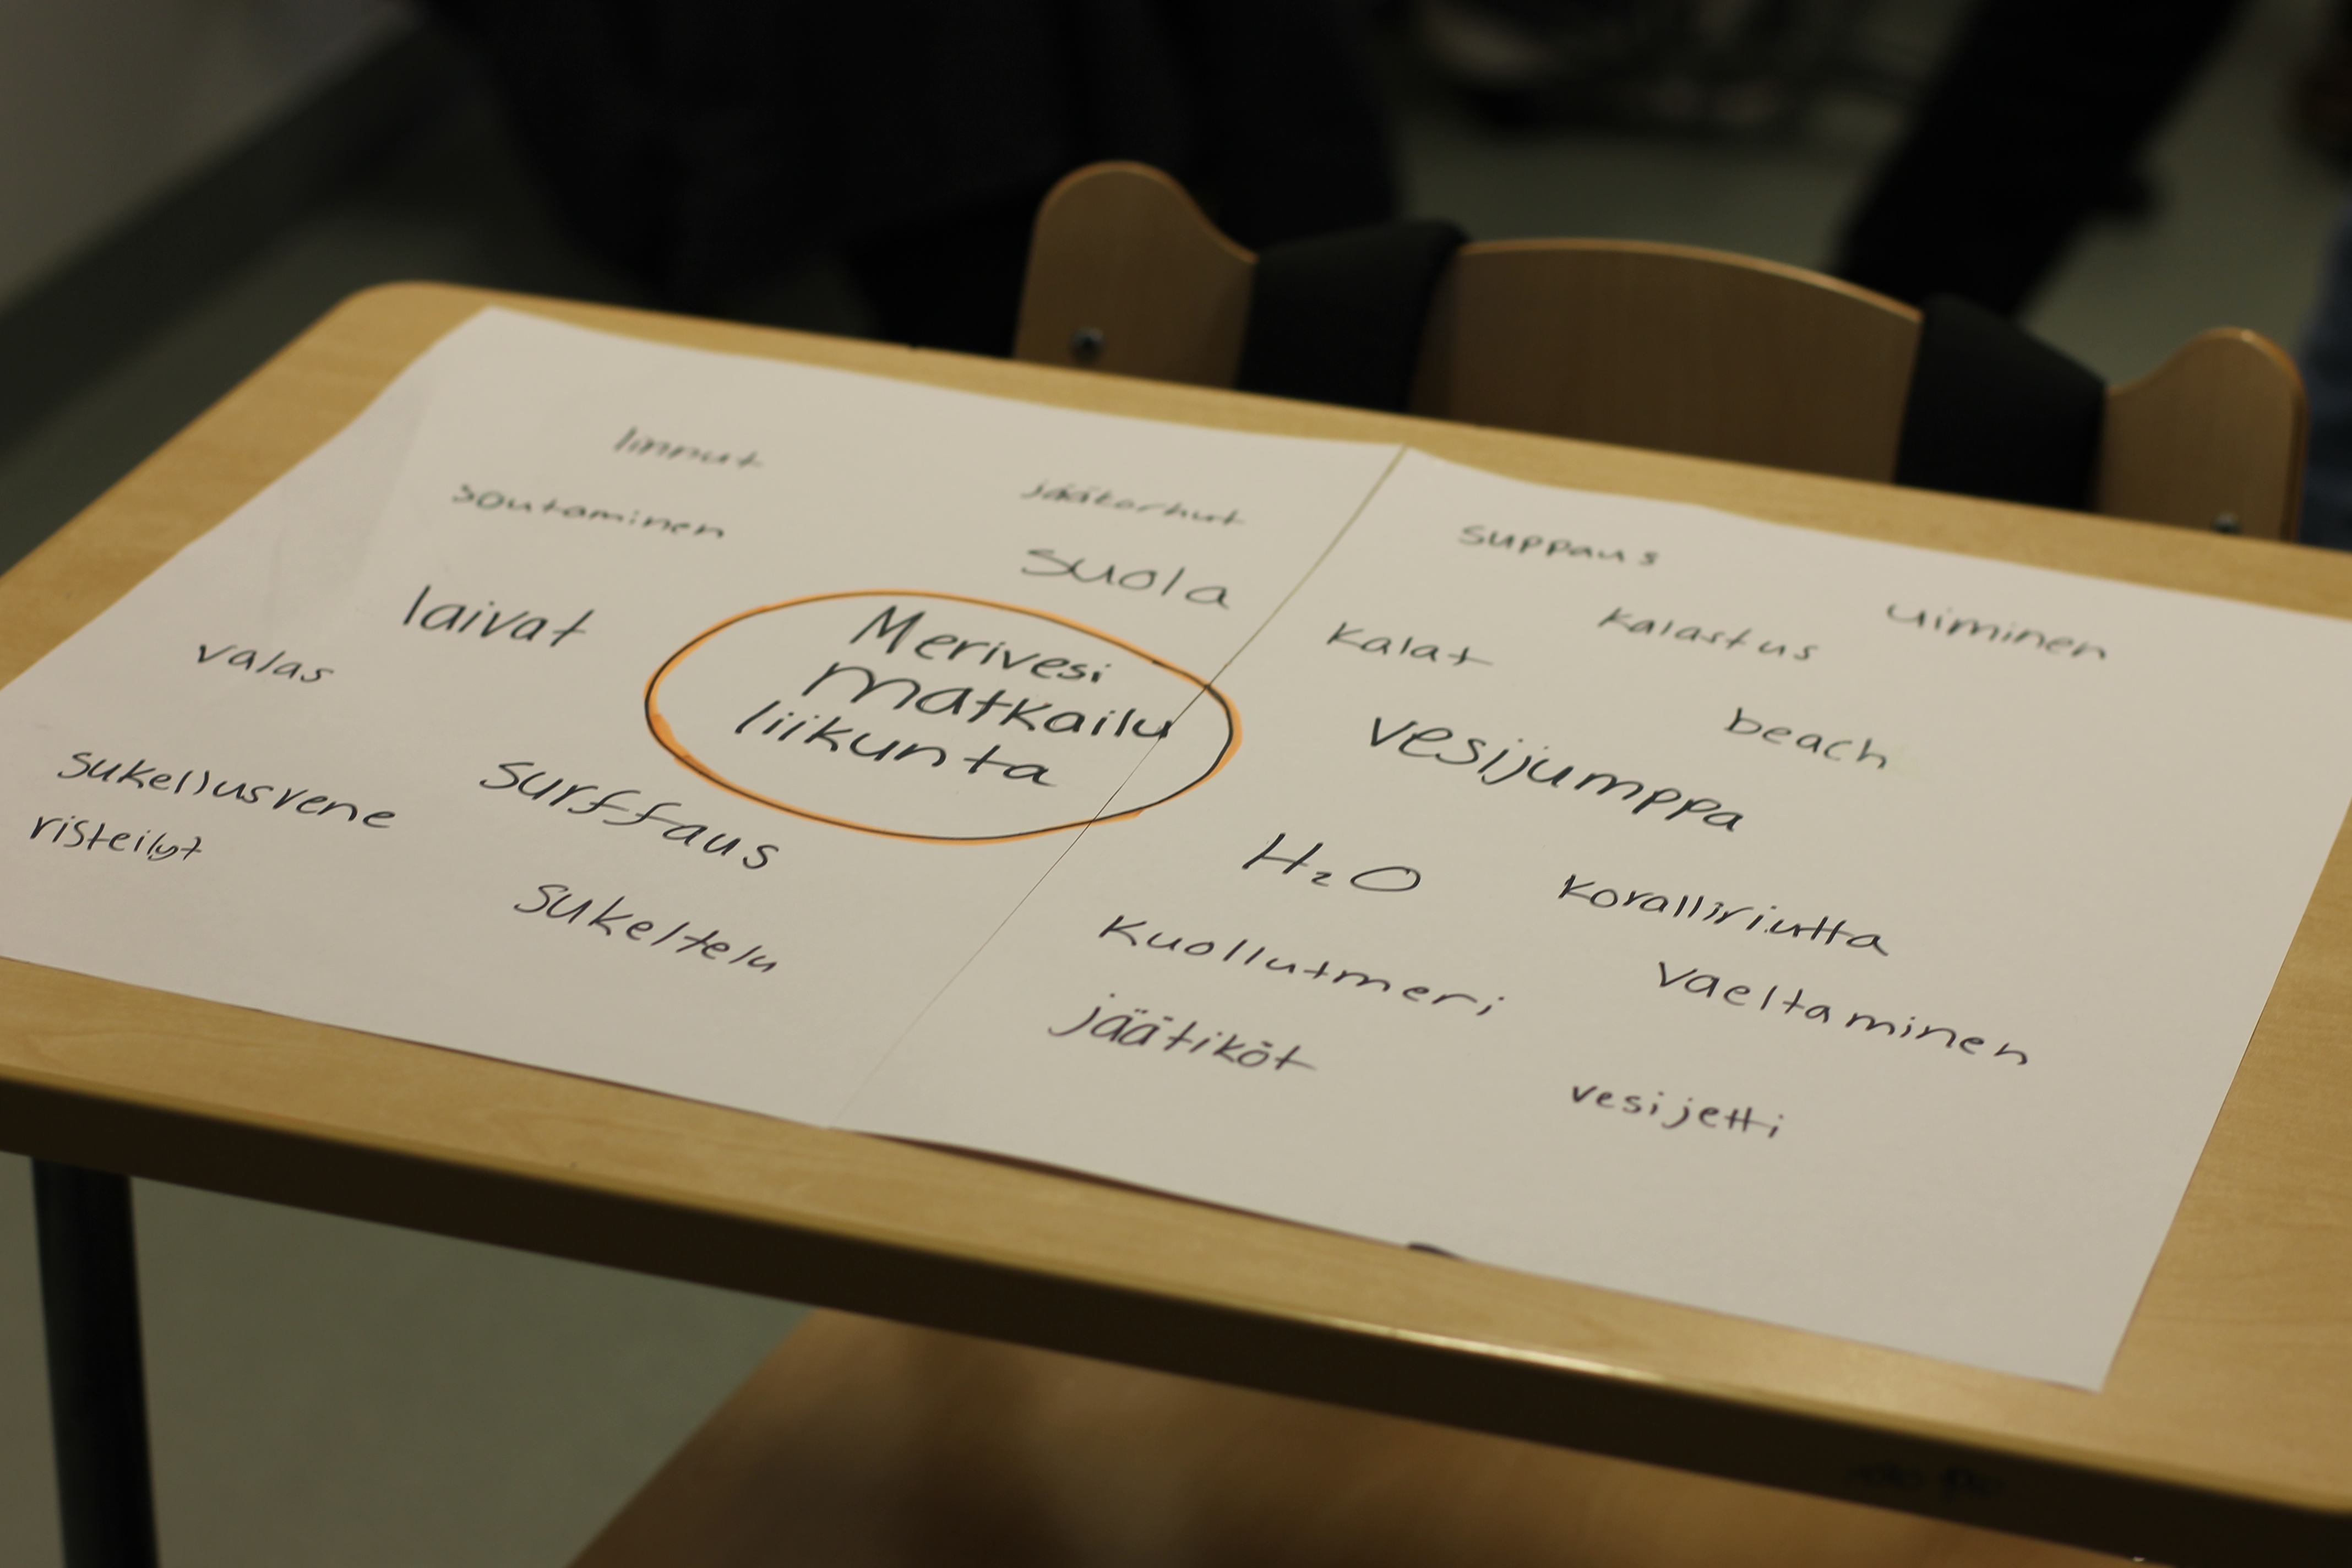 linnut
soutaminen
jääkarhut
suola
laivat
valas
Merivesi
matkailu
liikunta
sukellusvene
risteilyt
surffaus
sukeltelu
suppaus
kalat
kalastus
uiminen
beach
vesijumppa
H₂O
koralliriutta
Kuollutmeri
vaeltaminen
jäätiköt
vesijetti